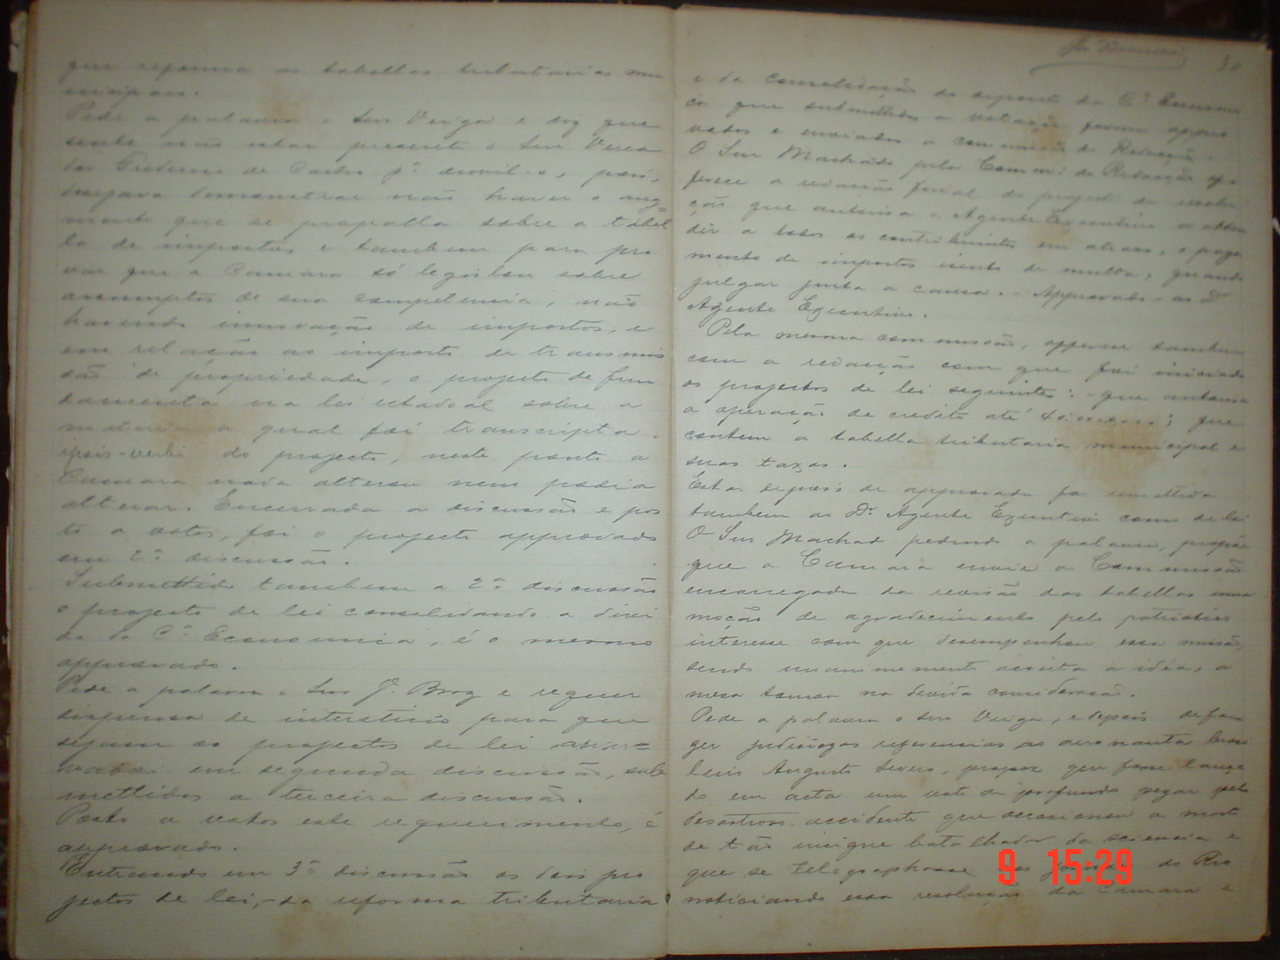 que reforma as tabellas tributarias mu
nicipaes.
Pede a palavra o Snr Veiga e diz que
sente não estar presente o Snr Verea
dor Frederico de Castro pª ouvil-o, pois,
desejava demonstrar não haver o aug-
mento que se propalla sobre a tabel
la de impostos e tambem para pro
var que a Camara só legislou sobre
assumptos de sua competencia, não
havendo innovação de impostos, e
em relação ao imposto de transmis
são de propriedade, o projecto se fun
damenta na lei estadoal sobre a
materia a qual foi transcripta
ipsis-verbis do projecto, neste ponto a
Camara nada alterou nem podia
alterar. Encerrada a discussão e pos
to a votos, foi o projecto approvado
em 2ª discussão.
Submettido tambem a 2ª discussão
o projecto de lei consolidando a divi
da da Cª Economica, é o mesmo
approvado.
Pede a palavra o Snr J. Braz e requer
dispensa de intersticio para que
sejam os projectos de lei appro=
vados em segunda discussão, sub
mettidos a terceira discussão.
Posto a votos este requerimento, é
approvado.
Entrando em 3ª discussão os dois pro
jectos de lei,-da reforma tributaria
30
e da consolidação do deposito da Cª Economi
ca que submettidos a votação foram appro
vados e enviados a commissão de Redacção.
O Snr Machado pela Commm: de Redacção of
ferece a redacção final do projecto de resolu
ção que autorisa o Agente Executivo a atten
der a todos os contribuintes em atraso, o paga
mento de impostos isento de multa, quando
julgar justa a causa. - Approvado - ao Dr
Agente Executivo.
Pela mesma commissão, offerece tambem
com a redacção com que foi iniciado
os projectos de lei seguintes: - que autorisa
a operação de credito até ; que
contem a tabella tributaria municipal e
suas taxas.
Estas depois de approvada foi remettida
tambem ao Dr. Agente Executivo como de lei
O Snr Machado pedindo a palavra, propõe
que a Camara envie a Commissão
encarregada da revisão das tabellas uma
moção de agradecimento pelo patriotico
interesse com que desempenhou essa missão,
sendo unanimemente acceita a idéa, a
mesa tomou na devida consideração.
Pede a palavra o Snr Veiga, e depois de fa
zer judiciozas referencias ao aeronauta brasi
leiro Augusto Severo, propoz que fosse lança
do em acta um voto de profundo pezar pelo
desastroso accidente que occasionou a morte
de tão insigne batalhador da sciencia e
que se telegraphasse do Rio
noticiando essa resolução da Camara e
9 15:29